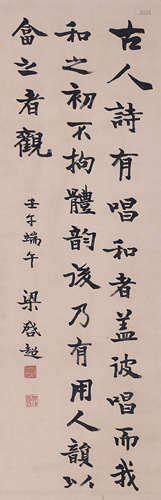 古人詩有唱和者盖彼唱而我
和之初不拘體韵後乃有用人韻以
畣之者觀
壬午端午 梁啓超